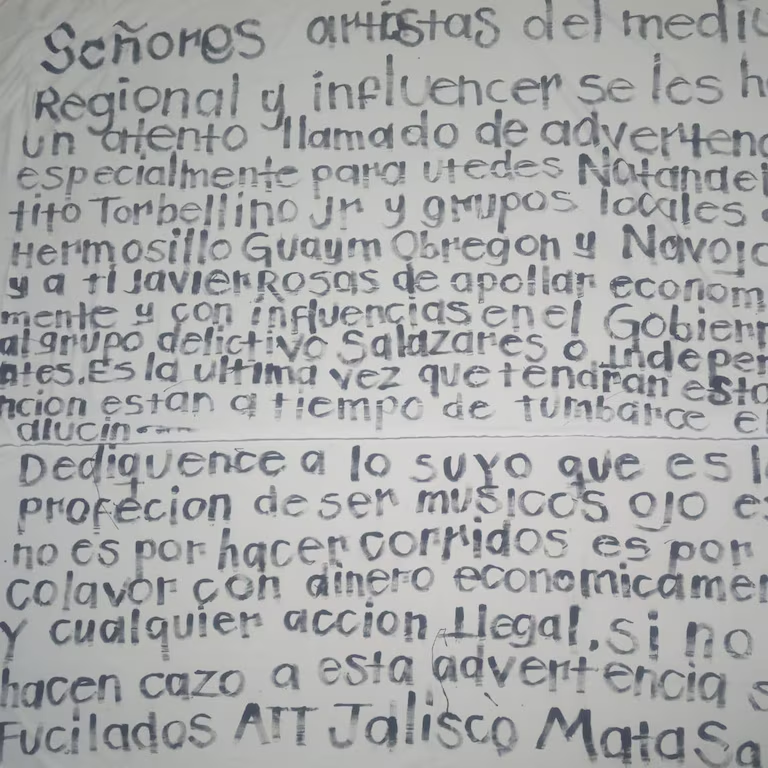 Señores artistas del mediu
Regional y influencer se les h
un atento llamado de advertenc
especialmente para utedes Natanael
tito Torbellino Jr y grupos locales
Hermosillo Guaym Obregon y Navojo
y a ti Javier Rosas de apollar econom
mente y con influencias en el Gobiern
al grupo delictivo Salazares o indepen
ntes. Es la ultima vez que tendran esta
ncion estan a tiempo de tumbarce el
alucin
Dediquence a lo suyo que es l
profecion de ser musicos ojo es
no es por hacer corridos es por
colavor con dinero economicamen
y cualquier accion Ilegal, si no
hacen cazo a esta advertencia s
Fucilados ATT Jalisco Mata Sa